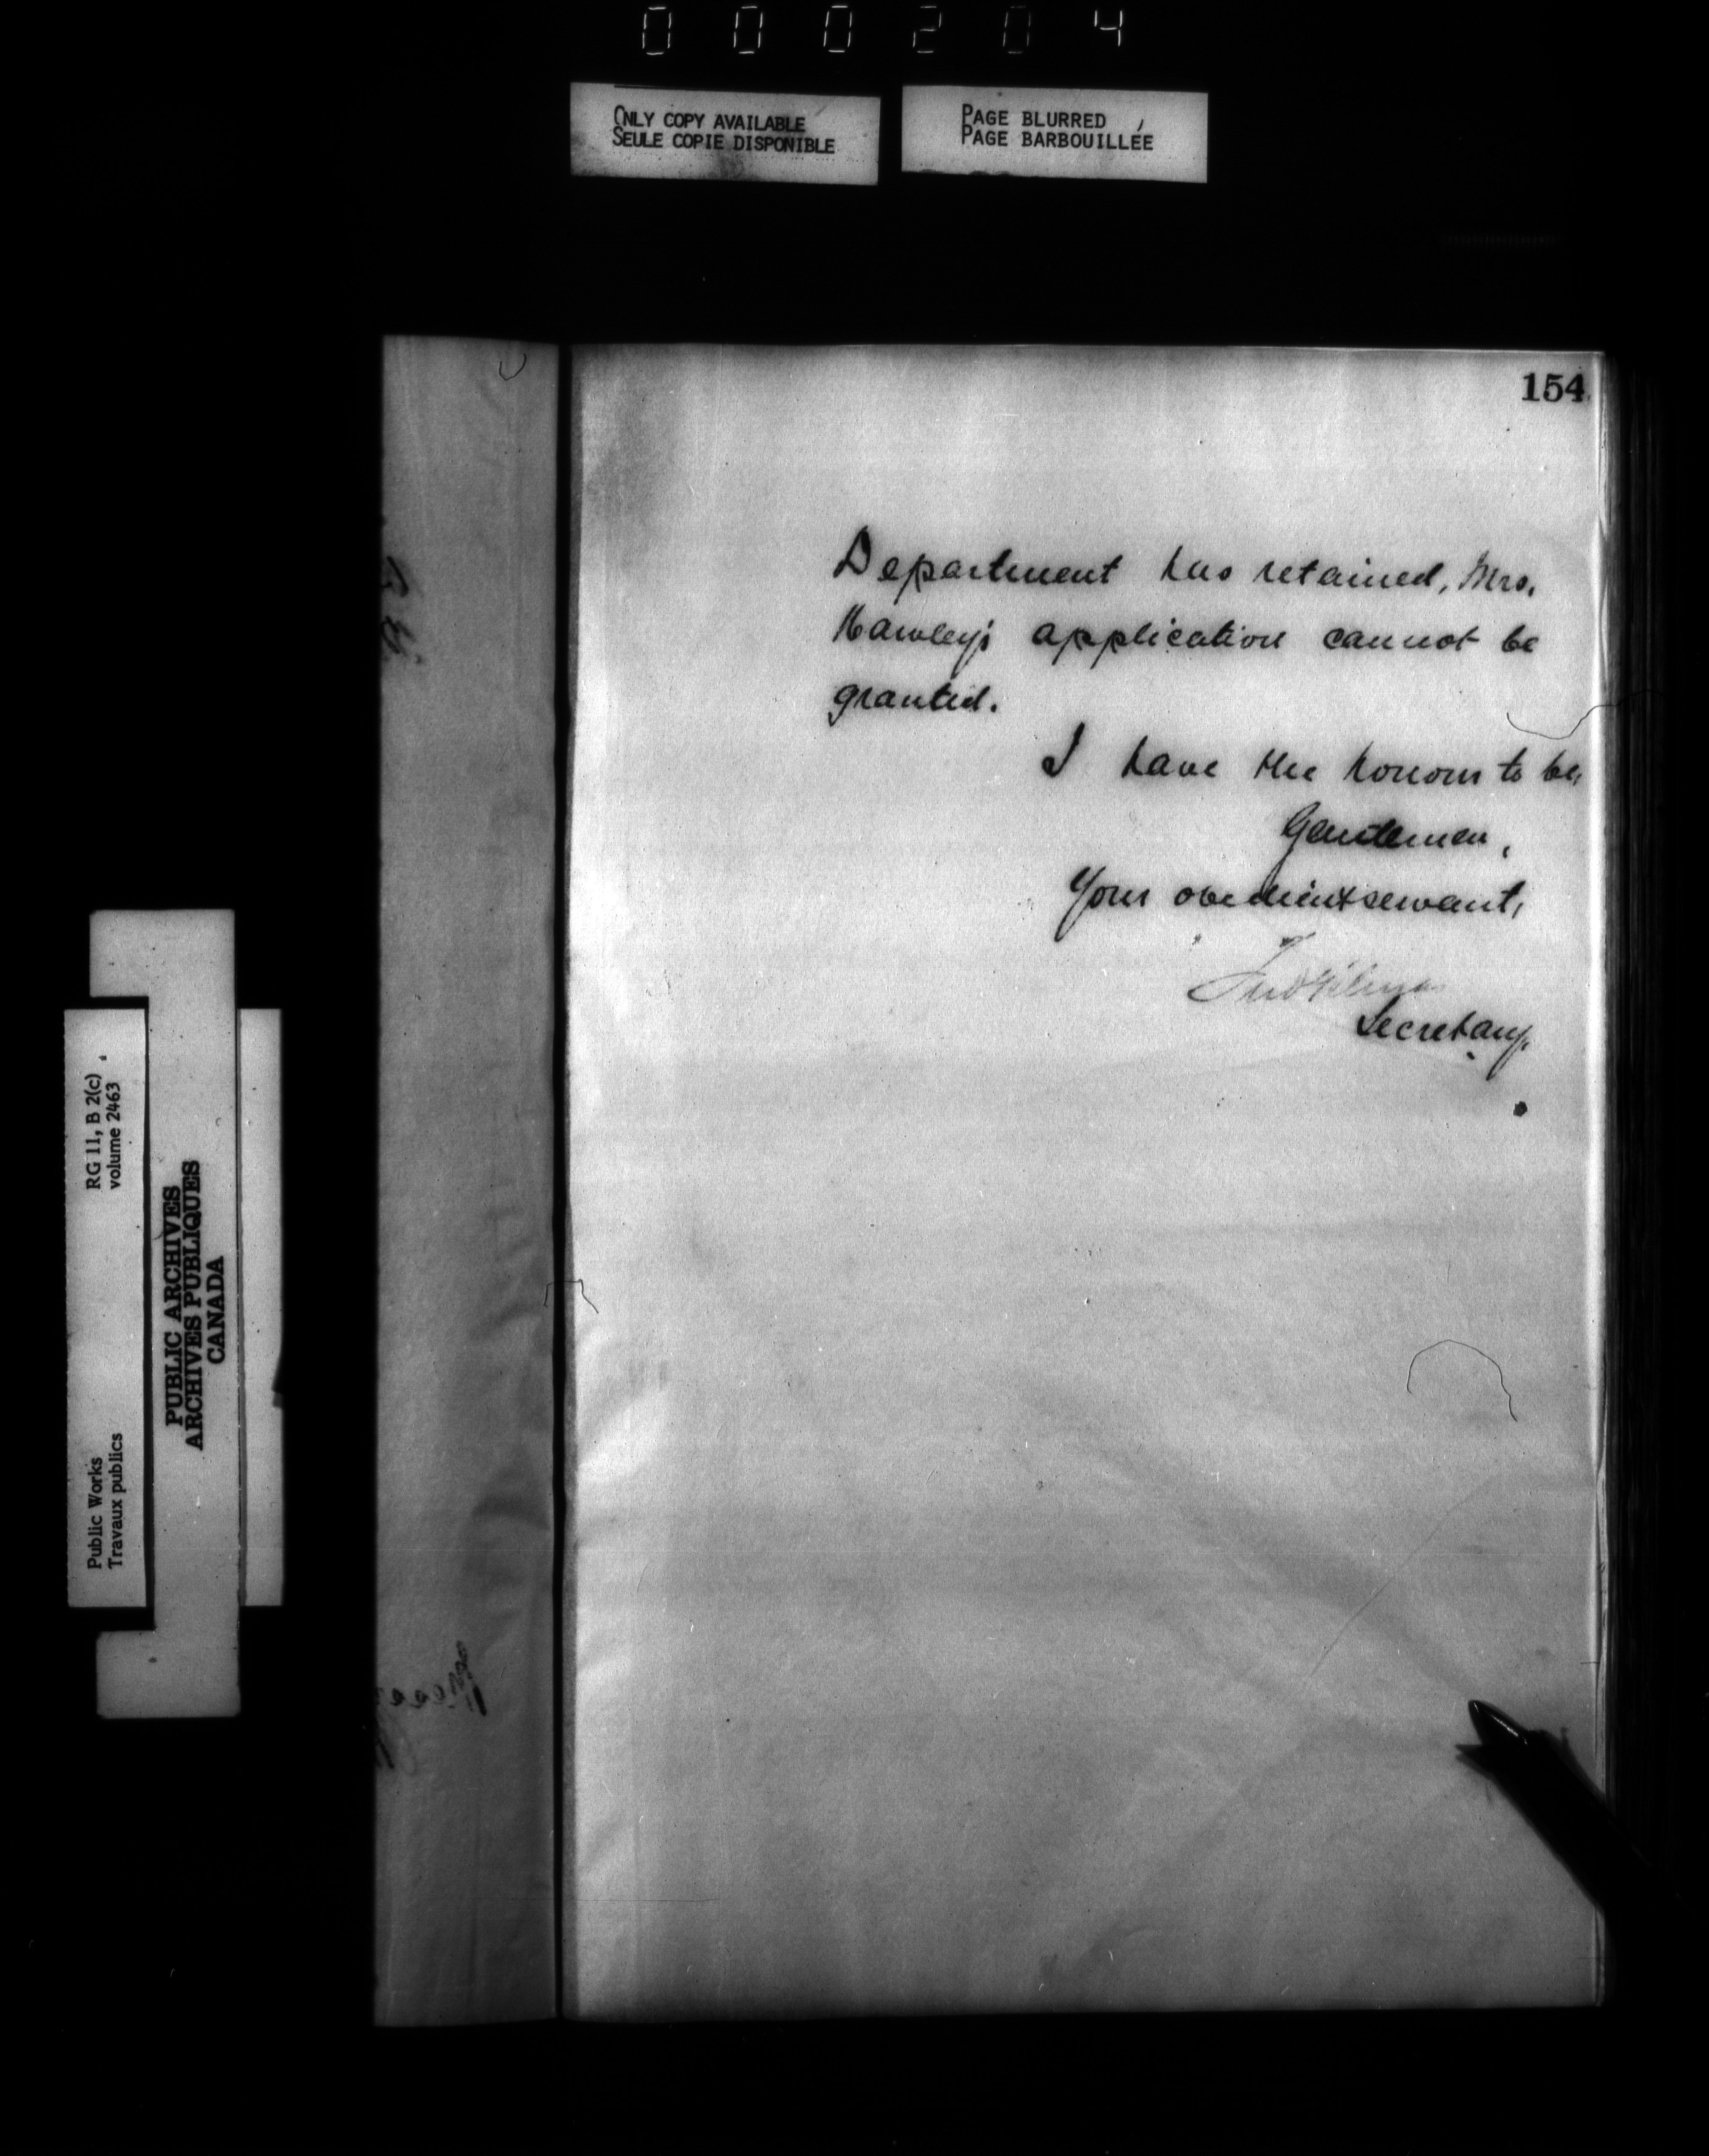 000204
ONLY COPY AVAILABLE
SEULE COPIE DISPONIBLE
PAGE BLURRED
PAGE BARBOUILLÉE
154
Department has retained, Mrs.
Hawley's application cannot be
granted.
I have the honour to be,
Gentlemen,
Your obedient servant,
Secretary.
RG 11, B 2(c)
volume 2463
Public Works
Travaux publics
PUBLIC ARCHIVES
ARCHIVES PUBLIQUES
CANADA